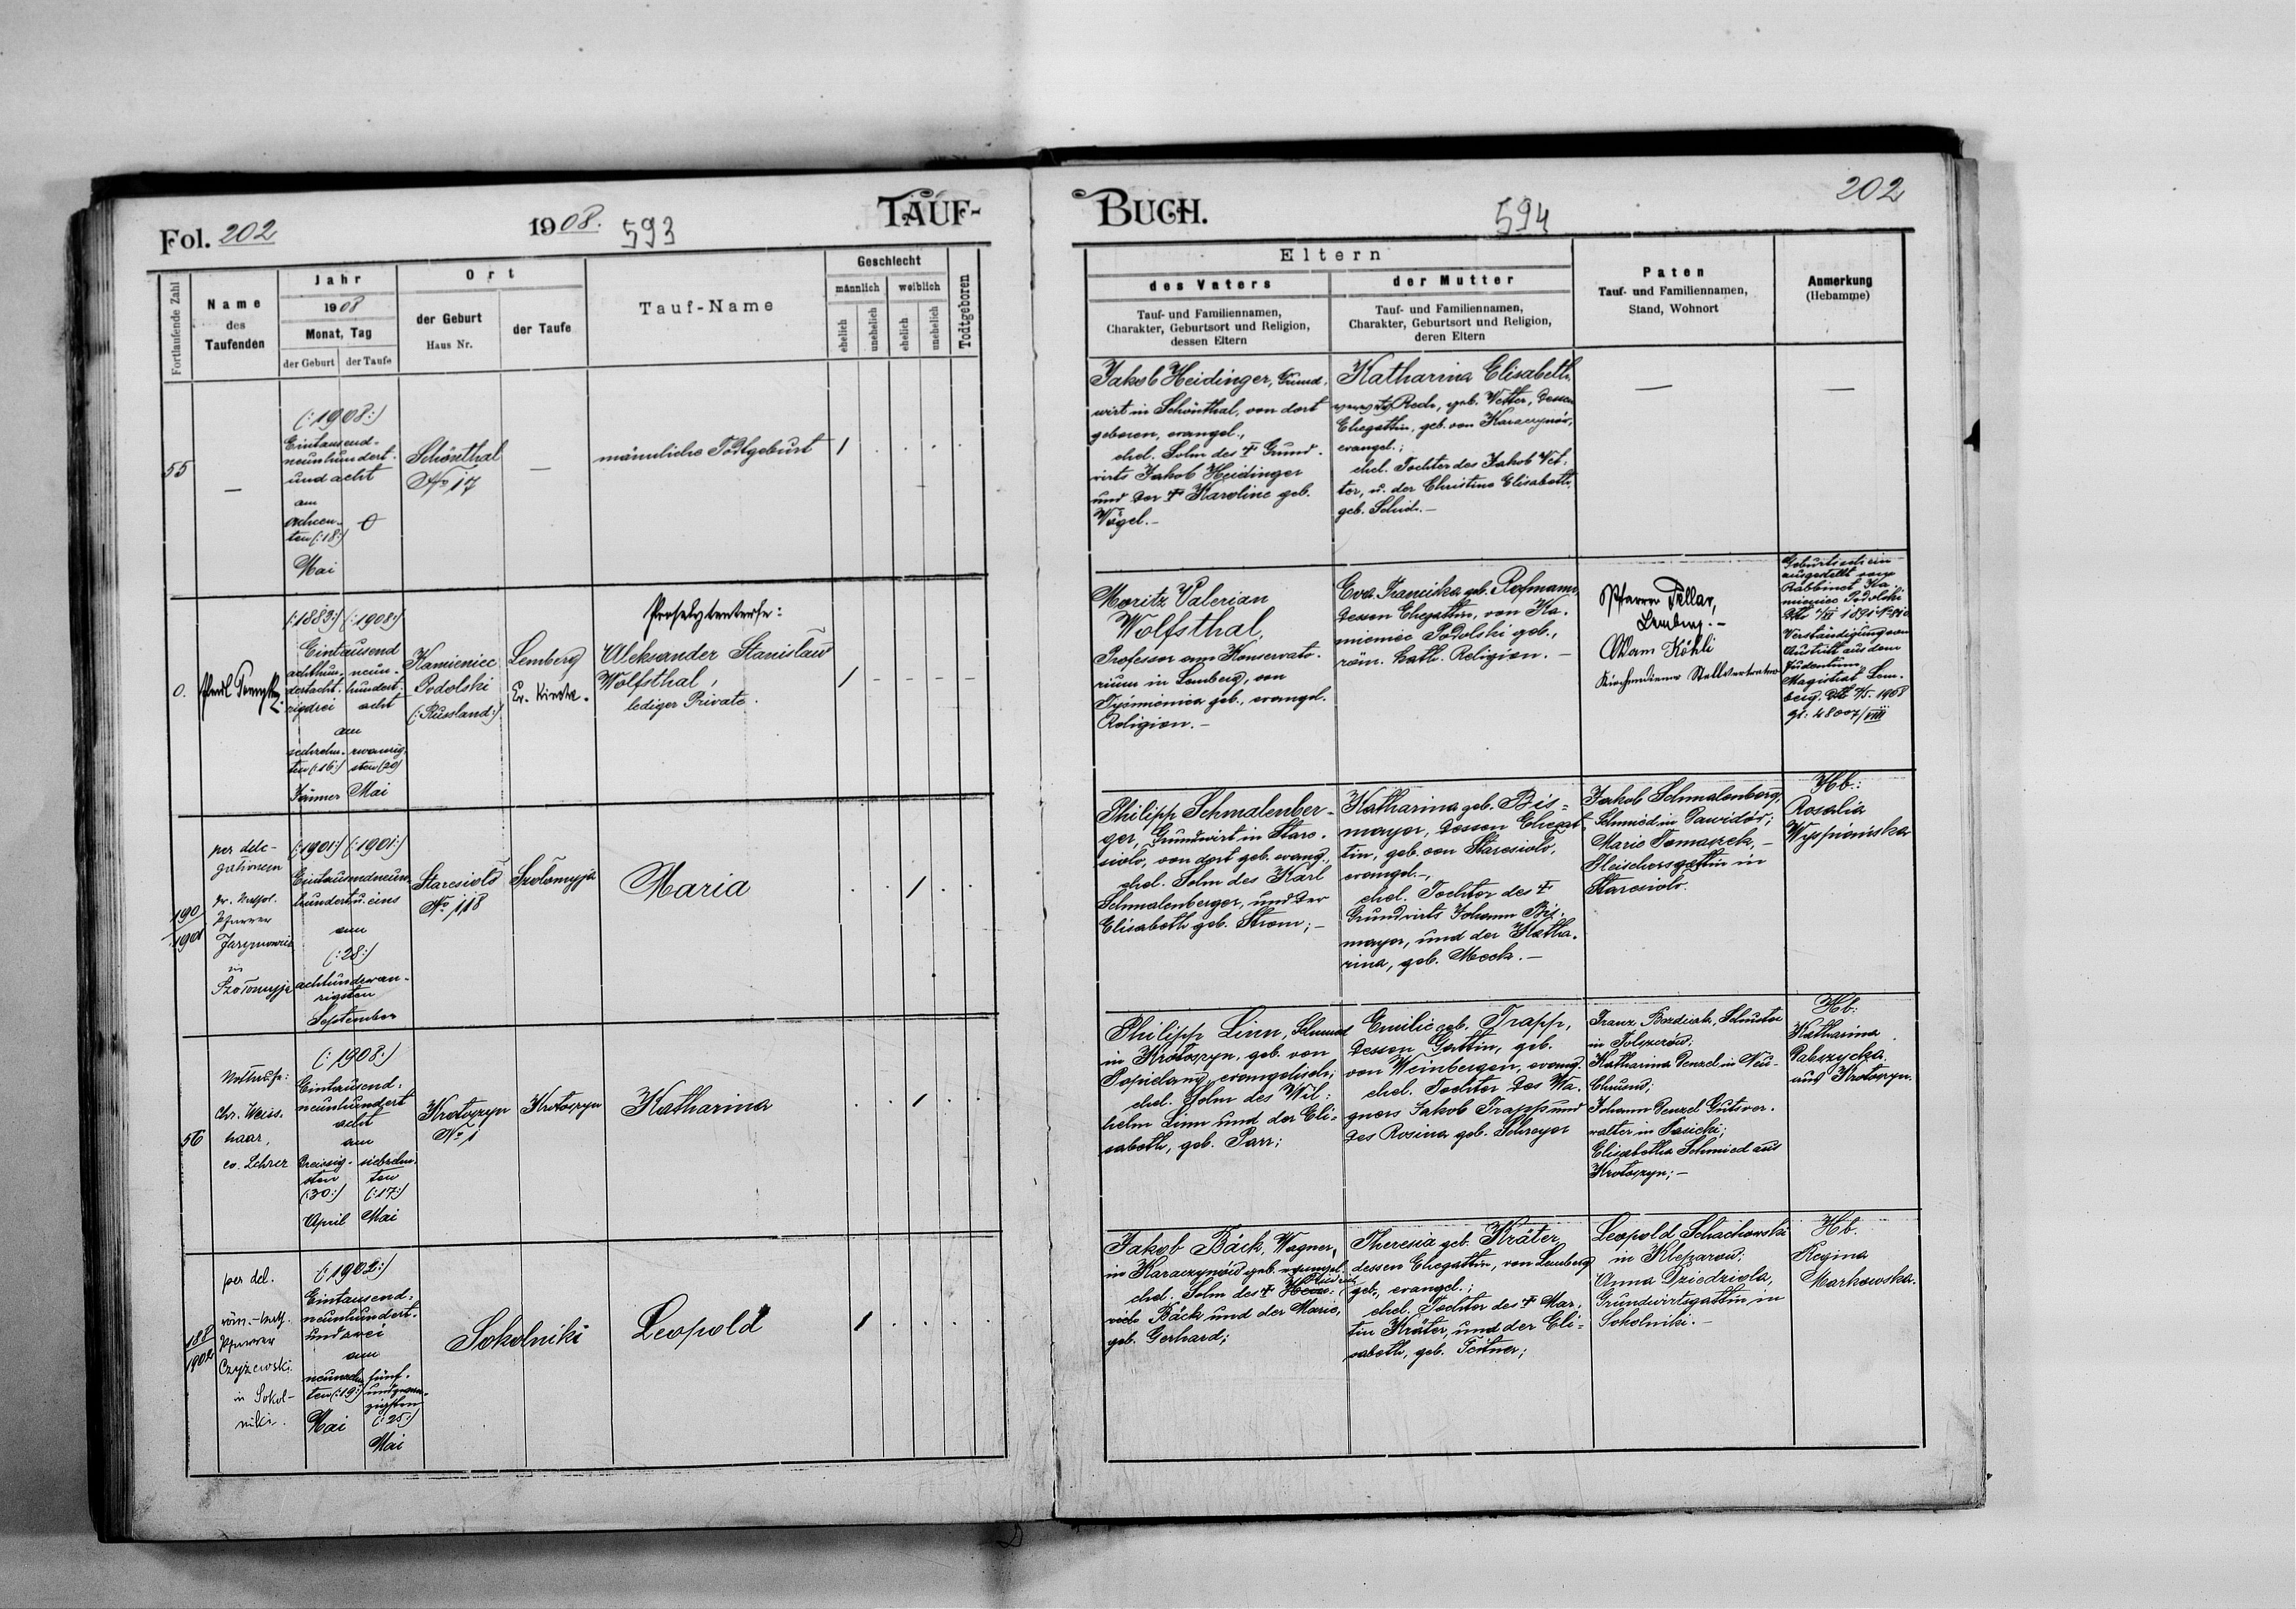 Fol. 202
1908.
593
TAUF-
Fortlaufende Zahl
Name
des
Taufenden
Jahr
1908
Monat, Tag
der Geburt
der Taufe
Ort
der Geburt
Haus Nr.
der Taufe
Tauf-Name
Geschlecht
männlich
weiblich
ehelich
unehelich
ehelich
unehelich
Todtgeboren
55
—
(:1908:)
Eintausend-
neunhundert-
und acht
am
achzen-
ten (:18:)
Mai
Schönthal
No 17
—
männliche Todtgeburt
1
0.
(:1883:) (:1908:)
Eintausend
achthun- neun-
dertacht- hundert-
zigdrei acht
am
sechzehn- zwanzig-
ten (:16:) sten (20)
Jänner Mai
Kamieniec
Podolski
(:Russland:)
Lemberg
Ev. Kirche.
Proselytentaufe:
Aleksander Stanislaw
Wolfsthal,
lediger Private.
1
190
1901
per dele-
gationem
Pfarrer
in
Szolomyja
(:1901:) (:1901:)
Eintausendneun-
hundert u. eins
am
(:28:)
achtundzwan-
zigsten
September
Staresiolo
No 118
Szolomyja
Maria
1
56
Nottaufe:
Chr. Weiss-
haar,
ev. Lehrer
(:1908:)
Eintausend-
neunhundert
acht
am
dreissig- siebzehn-
sten ten
(:30:) (:17:)
April Mai
Krotoszyn
No 1
Krotoszyn
Katharina
1
188
1902
per del.
röm.-kath.
Pfarrer
Czyżewski
in Sokol-
niki.
(:1902:)
Eintausend-
neunhundert-
und zwei
am
neunzehn- fünf-
ten (:19:) undzwan-
zigsten
Mai (:25:)
Mai
Sokolniki
Leopold
1
BUCH.
594
202
Eltern
des Vaters
Tauf- und Familiennamen,
Charakter, Geburtsort und Religion,
dessen Eltern
der Mutter
Tauf- und Familiennamen,
Charakter, Geburtsort und Religion,
deren Eltern
Paten
Tauf- und Familiennamen,
Stand, Wohnort
Anmerkung
(Hebamme)
Jakob Heidinger, Grund-
wirt in Schönthal, von dort
geboren, evangel.,
ehel. Sohn des † Grund-
wirts Jakob Heidinger
und der † Karoline geb.
Vögel.-
Katharina Elisabeth,
geb. Vetter, dessen
Ehegattin, geb. von Karaczynów,
evangel.;
ehel. Tochter des Jakob Vet-
ter, u. der Christine Elisabeth,
—
—
Moritz Valerian
Wolfsthal,
Professor am Konservato-
rium in Lemberg, von
Tyśmienica geb., evangel.
Religion.-
Eva Franciska geb. Rofmann,
dessen Ehegattin, von Ka-
mieniec Podolski geb.,
röm. kath. Religion.-
Pfarrer
Lemberg.-
Adam Köhli
Kirchendiener Stellvertreter
Geburtsschein
ausgestellt vom
Rabbinat Ka-
mieniec Podolski
Verständigung vom
Austritt aus dem
Judentum
Magistrat Lem-
berg, 1908
48007/VIII
Philipp Schmalenber-
ger, Grundwirt in Stare-
siolo, von dort geb. evang.,
ehel. Sohn des Karl
Schmalenberger, und der
Elisabeth geb. Strom;-
Katharina geb. Bis-
mayer, dessen Ehegat-
tin, geb. von Staresiolo,
evangel.-,
ehel. Tochter des †
Grundwirts Johann Bis-
mayer, und der Katha-
rina, geb. Mock.-
Jakob Schmalenberg,
Schmied in Dawidów;
Marie Tomaszek,-
Fleischersgattin in
Staresiolo.
Hb.:
Rosalia
Philipp Linn, Schmied
in Krotoszyn, geb. von
Popielany, evangelisch;
ehel. Sohn des Wil-
helm Linn und der Eli-
sabeth, geb. Parr;
Emilie geb. Trapp,
dessen Gattin, geb.
von Weinbergen, evang.
ehel. Tochter des Wa-
gners Jakob Trapp und
des Rosina geb. Schreyer
Franz Schuster
in Tolszczów;
Katharina Denzel in Neu-
Chrusno;
Johann Denzel Gutsver-
walter in Pasieki;
Elisabetha Schmied aus
Krotoszyn;-
Hb:
Katharina
aus Krotoszyn.
Jakob Bäck, Wagner,
in Karaczynów geb. evangel.
ehel. Sohn des †
rich Bäck und der Marie,
geb. Gerhard;
Theresia geb. Kräter,
dessen Ehegattin, von Lemberg
geb., evangel.;
ehel. Tochter des † Mar-
tin Kräter, und der Eli-
sabeth, geb. Törtner;
Leopold Schachowski
in Kleparow;
Anna Dziedziola,
Grundwirtsgattin in
Sokolniki.-
Hb.
Regina
Markowska.